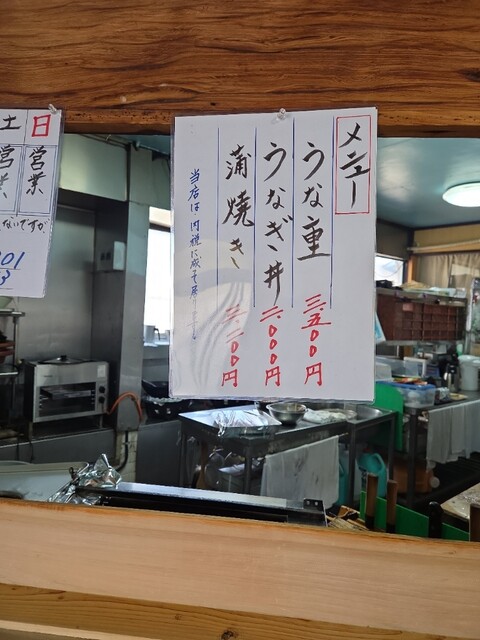 メニュー
うな重 三、五〇〇円
うなぎ丼 二、〇〇〇円
蒲焼き 二、二〇〇円
当店は内税に成って居ります
日
営業
土
営業
ないですが